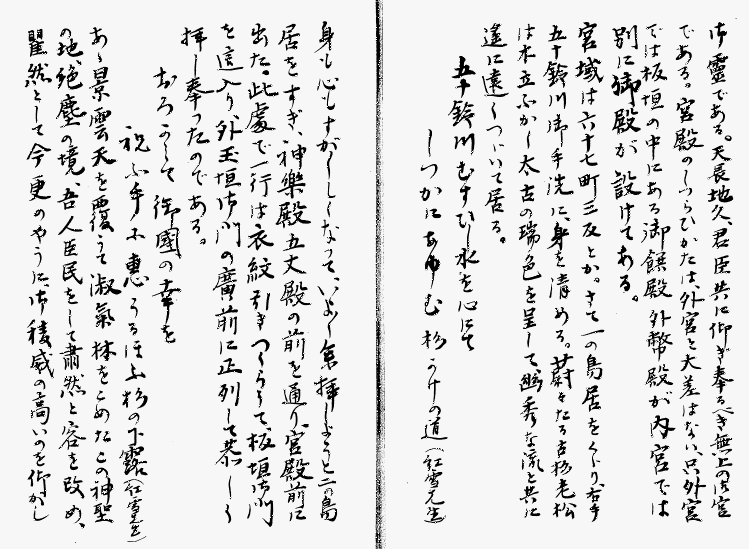 御靈である。天長地久、君臣共に仰ぎ奉るべき無上の御宮
である。宮殿のしつらひかたは、外宮と大差はない。只外宮
では板垣の中にある御饌殿、外幣殿が内宮では
別に御殿が設けてある。
宮域は六十七町三反とか。さて一の鳥居をくぐり、右手
五十鈴川御手洗に、身を清める。蔚々たる古杉老松
は木立ふかく太古の瑞色を呈して、幽秀な流と共に
遠に遠くつゞいて居る。
五十鈴川むすびし水を心にて
しづかにあゆむ杉かげの道（紅雪先生）
身も心もすが〱しくなつて、いよ〱參拜しようと二の鳥
居をすぎ、神樂殿五丈殿の前を通り、宮殿前に
出た。此處で一行は衣紋引きつくろうて、板垣御門
を這入り、外玉垣御門の廣前に正列して恭しく
拜し奉つたのである。
おろがみて御國の幸を
祝ふ手に惠うるほふ杉の下露（紅雪先生）
あゝ景雲天を覆うて淑氣林をこめたこの神聖
の地、絶塵の境、吾人臣民をして肅然と容を改め、
翟然として今更のやうに、御稜威の高いのを仰がし